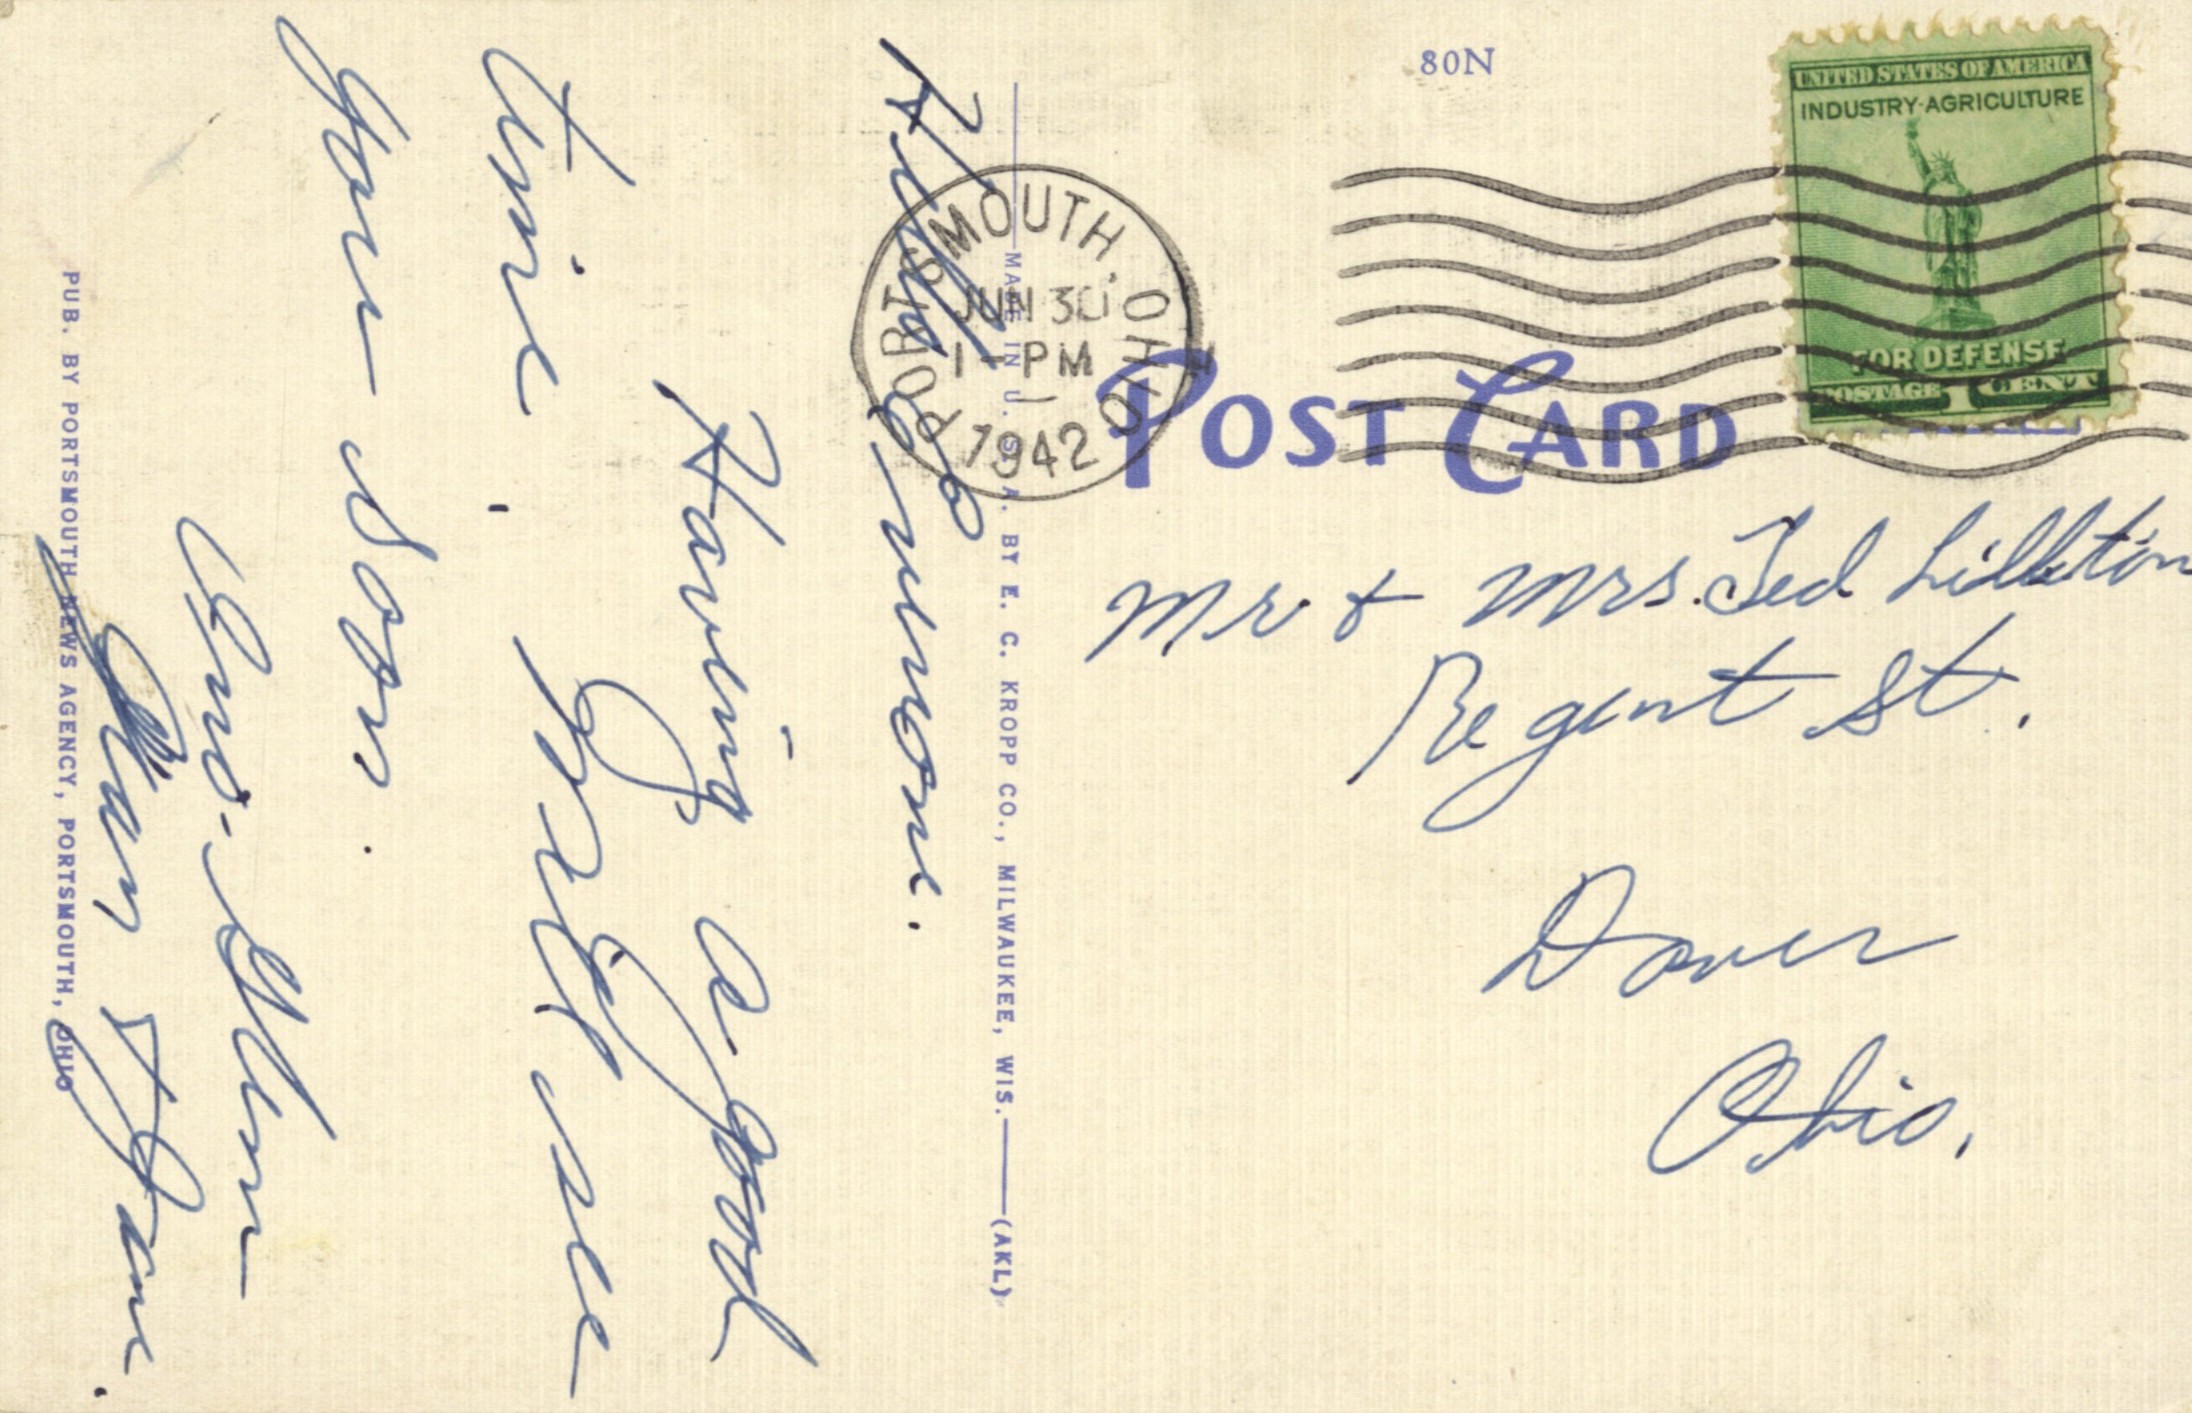 80N
UNITED STATES OF AMERICA
INDUSTRY-AGRICULTURE
FOR DEFENSE
POSTAGE 1 CENT
PORTSMOUTH, OHIO
JUN 30
1-PM
1942
POST CARD
Mr & Mrs. Ted
Regent St.
Dover
Ohio.
Hello everyone.
Having a good
time. We'll see
you soon.
Glenn
& Jane.
MADE IN U. S. A. BY E. C. KROPP CO., MILWAUKEE, WIS. (AKL)
PUB. BY PORTSMOUTH NEWS AGENCY, PORTSMOUTH, OHIO